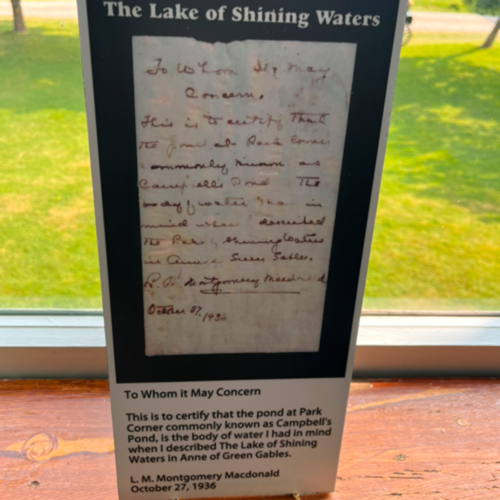 The Lake of Shining Waters
To Whom It May
Concern,
This is to certify that
the pond at Park Corner
commonly known as
Campbells Pond The
body of water I had in
mind when I described
The Lake of Shining Waters
in Anne of Green Gables.
L. M. Montgomery Macdonald
October 27, 1936
To Whom it May Concern
This is to certify that the pond at Park
Corner commonly known as Campbell's
Pond, is the body of water I had in mind
when I described The Lake of Shining
Waters in Anne of Green Gables.
L. M. Montgomery Macdonald
October 27, 1936